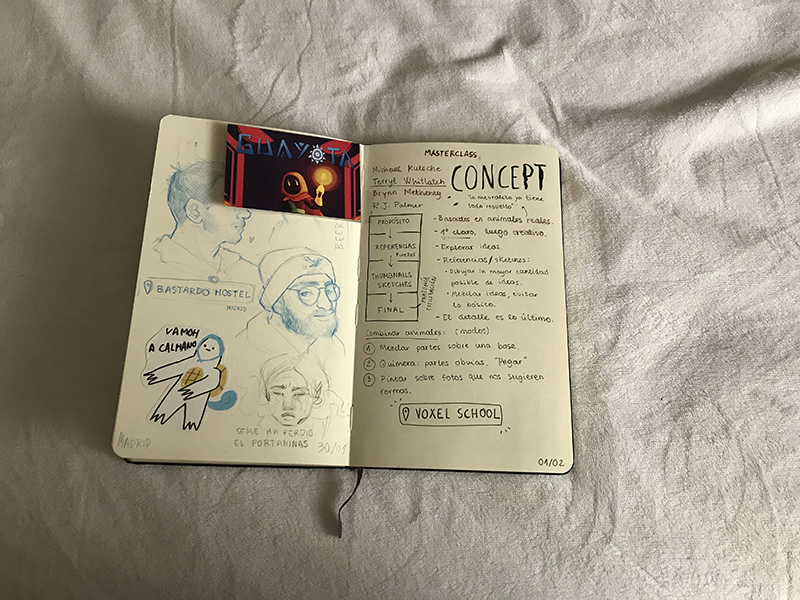 GUAYOTA
BASTARDO HOSTEL
MADRID
VAMOH
A CALMANO
SEME HA PERDIO
EL PORTAMINAS
MADRID
30/01
MASTERCLASS
CONCEPT
Michael Kutsche
Terryl Whitlatch
Brynn Metheney
R.J. Palmer
"la naturaleza ya tiene
todo resuelto"
PROPÓSITO
REFERENCIAS
THUMBNAILS
SKETCHES
FINAL
- Basadas en animales reales.
- 1º claro, luego creativo.
- Explorar ideas.
- Referencias/sketches:
• Dibujar la mayor cantidad
posible de ideas.
• Mezclar ideas, evitar
lo básico.
- El detalle es lo último.
Combinar animales: (modos)
1 Mezclar partes sobre una base.
2 Quimera: partes obvias. "Pegar"
3 Pintar sobre fotos que nos sugieren
formas.
VOXEL SCHOOL
01/02